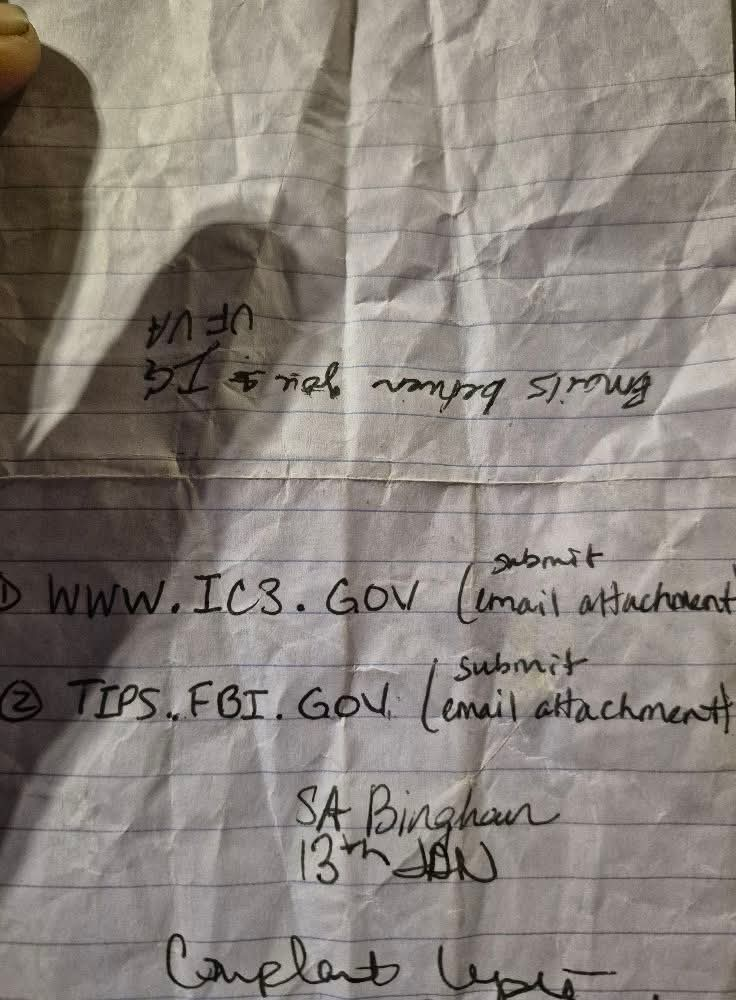 Emails between you & IG
VFVA
① WWW.IC3.GOV (submit
email attachment
② TIPS.FBI.GOV (submit
email attachment)
SA Bingham
13th JAN